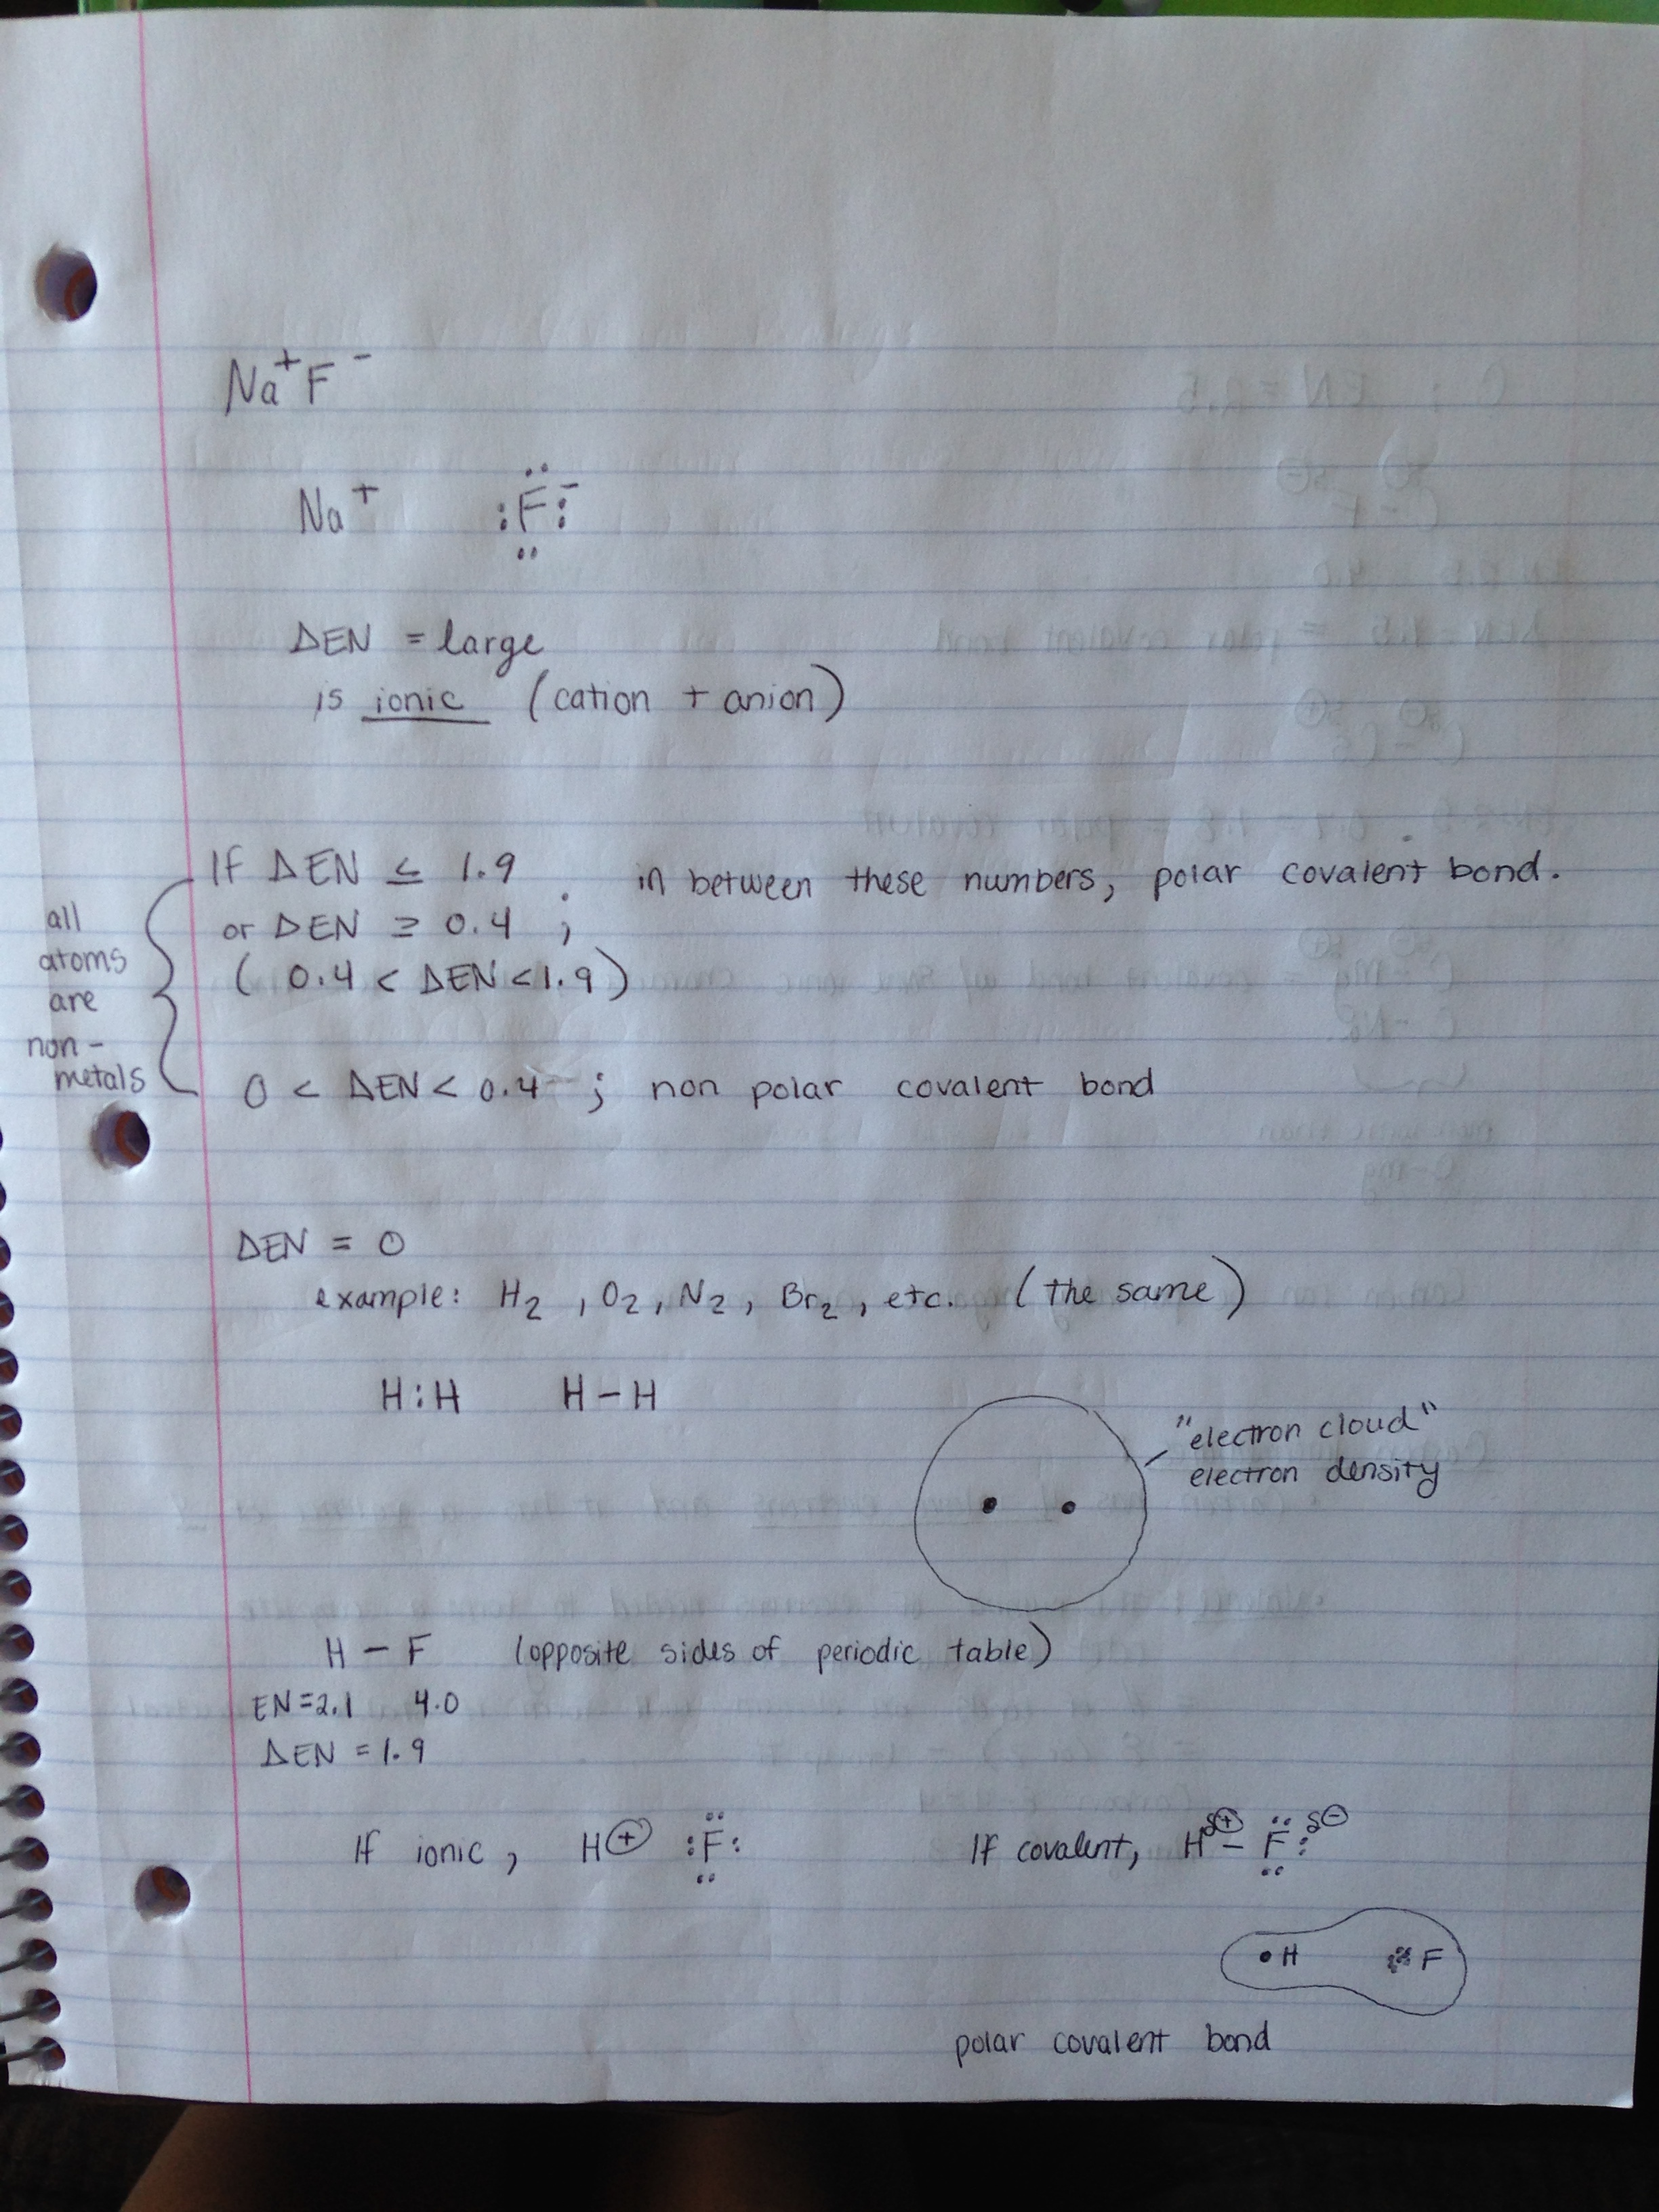 Na⁺F⁻
Na⁺ :F̈:⁻
ΔEN = large
is ionic (cation + anion)
If ΔEN ≤ 1.9 ; in between these numbers, polar covalent bond.
or ΔEN ≥ 0.4 ;
(0.4 < ΔEN < 1.9)
0 < ΔEN < 0.4 ; non polar covalent bond
all
atoms
are
non-
metals
ΔEN = 0
example: H₂, O₂, N₂, Br₂, etc. (the same)
H:H H–H
"electron cloud"
electron density
H – F (opposite sides of periodic table)
EN=2.1 4.0
ΔEN = 1.9
If ionic, H⊕ :F̈: If covalent, H^δ⊕ – F̈:^δ⊖
H F
polar covalent bond